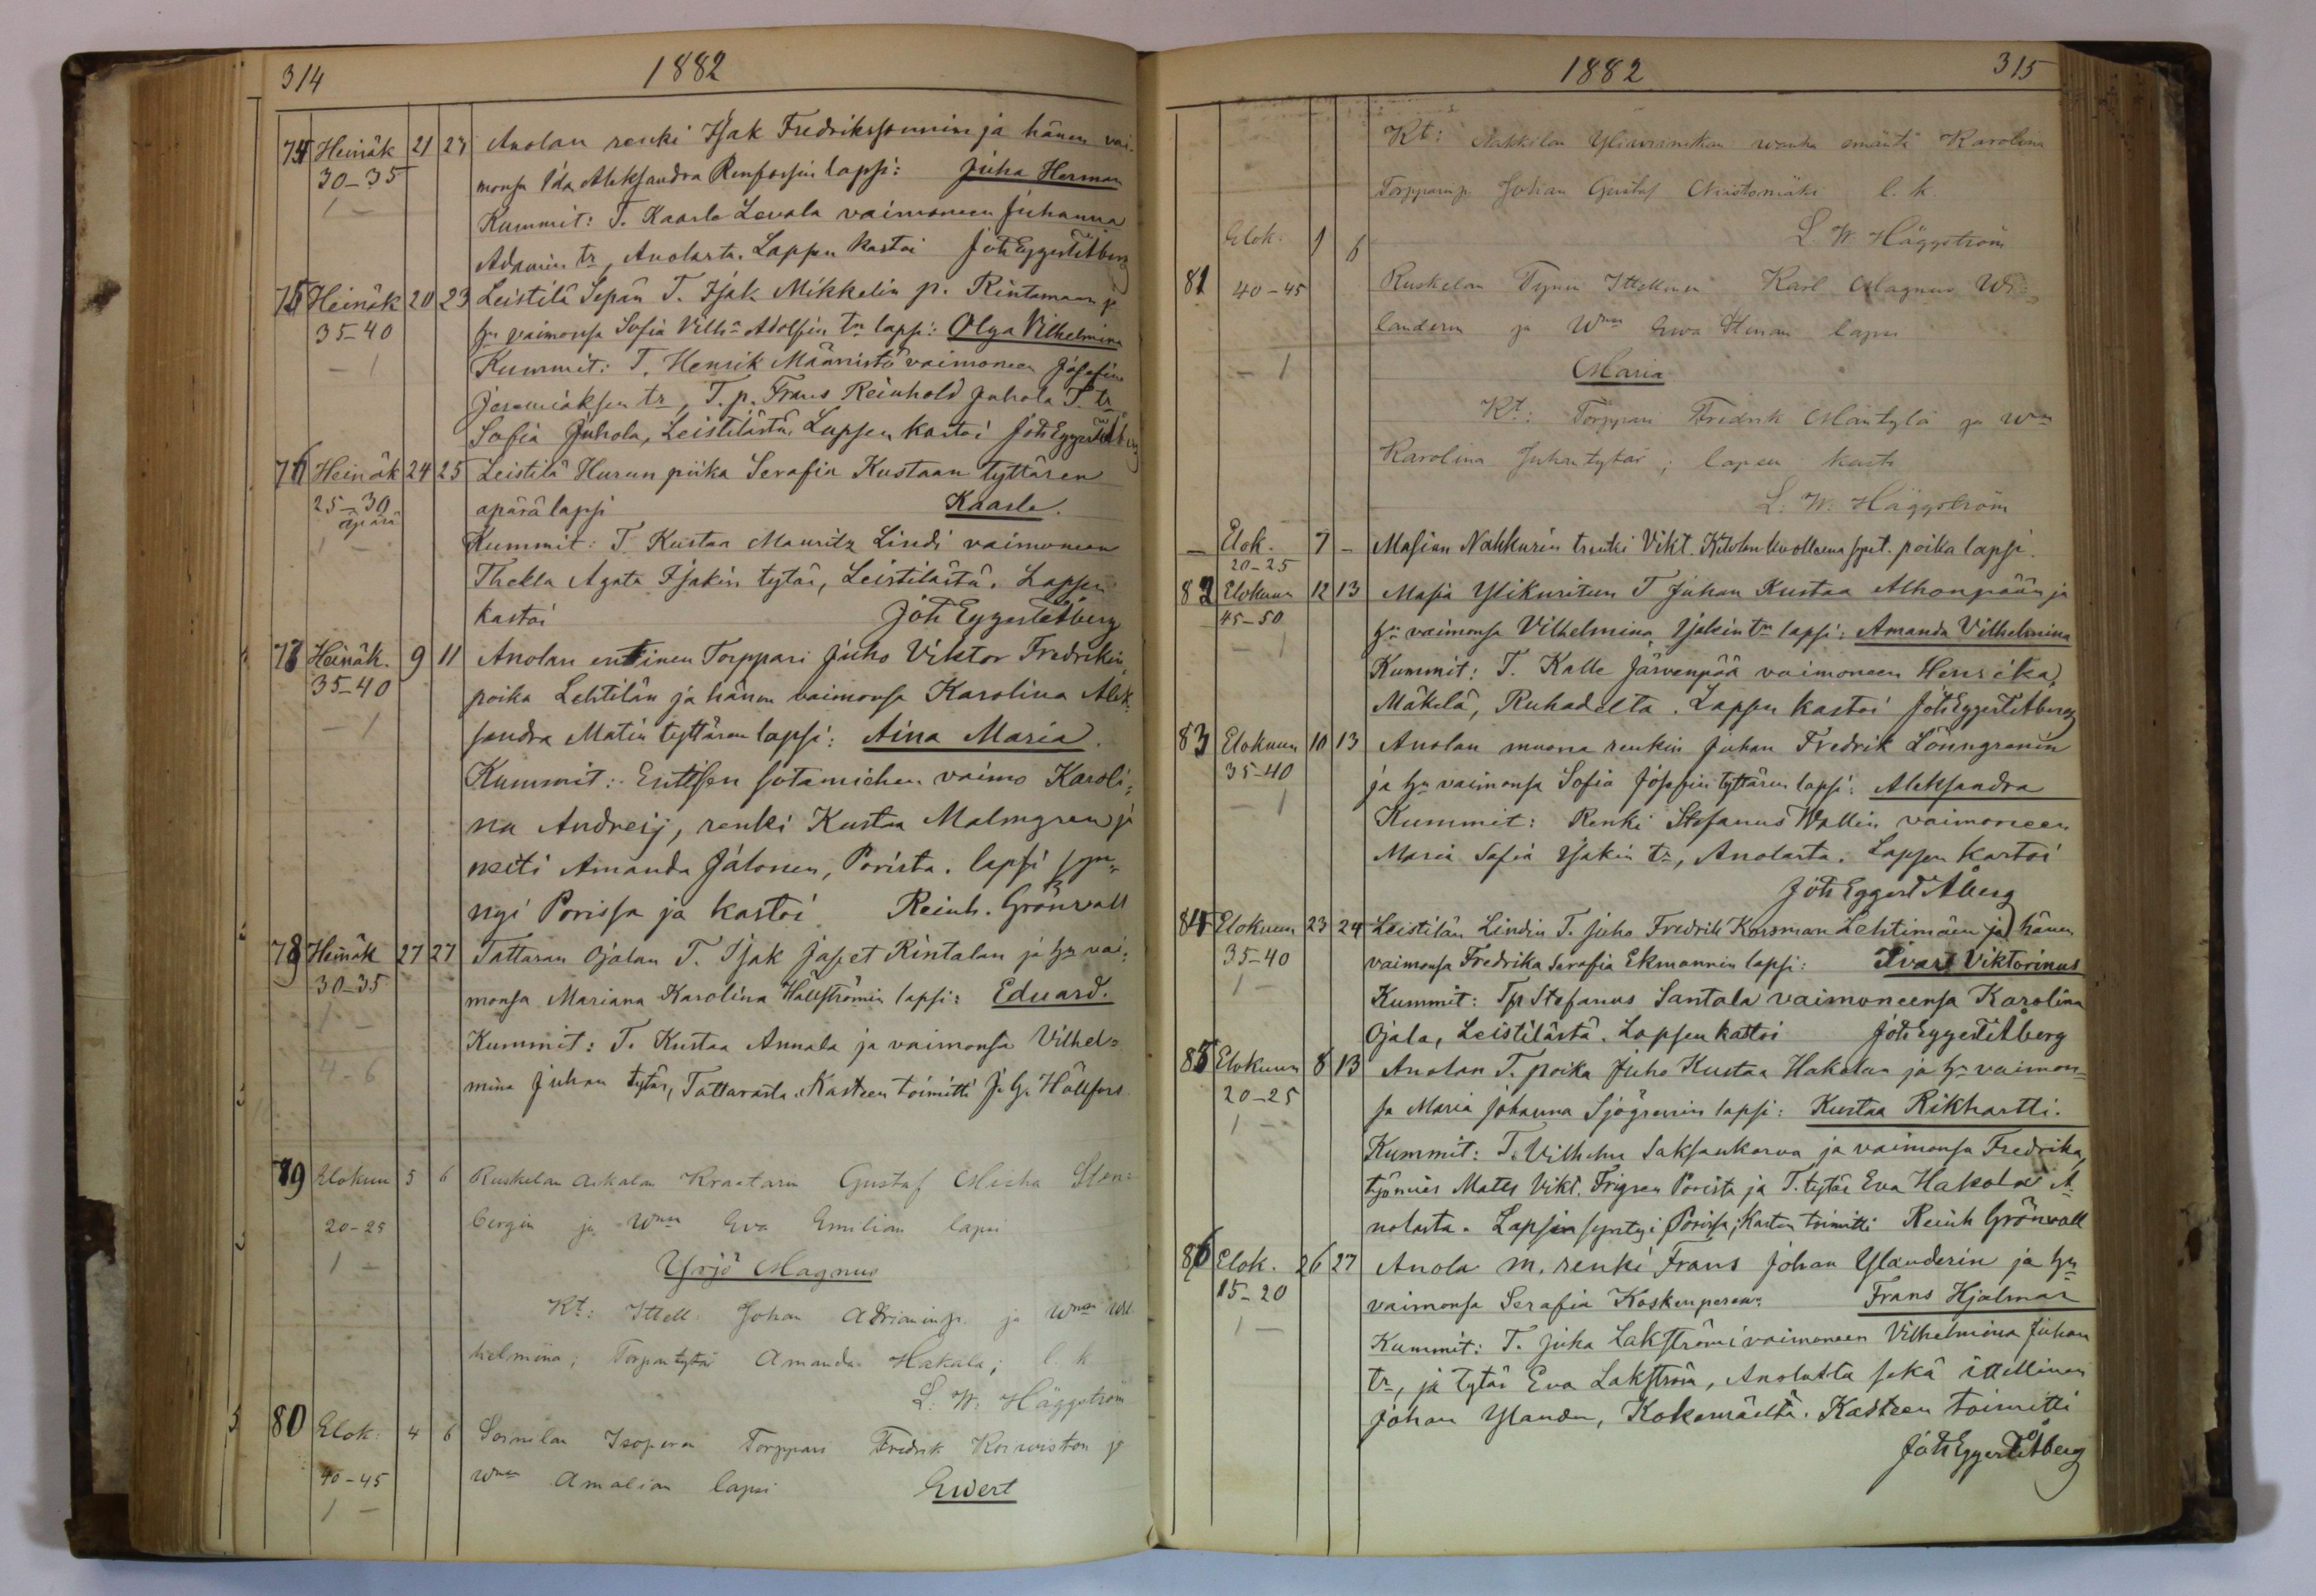 314
1882
74 Heinäk 21 23 Anolan renki Isak Fredrikssonnin ja hänen vai-
30–35 monsa Ida Aleksandra Renforsin lapsi: Juha Herman
1 – Kummit: T. Kaarle Levala vaimoneen Juhanna
Adamin tr, Anolasta. Lapsen kastoi Joh Eggert Åberg
75 Heinäk 20 23 Leistilä Sepän T. Isak Mikkelin p. Rintamaan ja
35–40 hn vaimonsa Sofia Vilh:a Adolfin tn lapsi: Olga Vilhelmina
– 1 Kummit: T. Henrik Männistö vaimoneen Josefina
Jeremiaksen tr, T. p. Frans Reinhold Juhola T. tr
Sofia Juhola, Leistilästä. Lapsen kastoi Joh Eggert Åberg
76 Heinäk 24 25 Leistilä Hurun piika Serafia Kustaan tyttären
25–30 äpärälapsi Kaarle.
äpärä
1 – Kummit: T. Kustaa Mauritz Lindi vaimoneen
Thekla Agata Isakin tytär, Leistilästä. Lapsen
kastoi Joh Eggert Åberg
77 Heinäk. 9 11 Anolan entinen Torppari Juho Viktor Fredrikin
35–40 poika Lehtilän ja hänen vaimonsa Karolina Alek-
– 1 sandra Matin tyttären lapsi: Aina Maria.
Kummit: Entisen sotamiehen vaimo Karoli-
na Andreij, renki Kustaa Malmgren ja
neiti Amanda Jalonen, Porista. lapsi syn-
nyi Porissa ja kastoi Reinh. Grönvall
78 Heinäk 27 27 Tattaran Ojalan T. Isak Japet Rintalan ja hn vai-
30–35 monsa Mariana Karolina Hällströmin lapsi: Eduard.
1 – Kummit: T. Kustaa Annala ja vaimonsa Vilhel-
4–6 mina Juhan tytär, Tattarasta. Kasteen toimitti J. G. Hällfors
79 Elokuu 5 6 Ruskelan Askalan Kraatarin Gustaf Micha Sten-
20–25 bergin ja Wmn Eva Emilian lapsi
1 – Yrjö Magnus
Kt: Ittell. Johan Adrianinp. ja Wmo Wil
helmina; Torpantytär Amanda Hakala; l. k
L. W. Häggström
80 Elok. 4 6 Sornilan Isoperen Torppari Fredrik Koiwiston ja
40–45 Wmn Amalian lapsi Ewert
1 –
1882
315
Kt: Nakkilan Yliwiinikan wanha emäntä Karolina
Torpparinp. Johan Gustaf l. k.
L. W. Häggström
Elok. 1 6
81 40–45 Ruskelan Tynin Ittellinen Karl Magnus Wi-
landerin ja Wmn Ewa Stinan lapsi
– 1 Maria
Kt: Torppari Fredrik Mäntylä ja Wmo
Karolina Juhantytär; lapsen kasti
L. W. Häggström
– Elok. 7 – Masian Nahkurin trenki Vikt. kuolleena synt. poika lapsi.
20–25
82 Elokuun 12 13 Masia Ylikuritun T Juhan Kustaa Alhonpään ja
45–50 hn vaimonsa Vilhelmina Isakin tn lapsi: Amanda Vilhelmina
– 1 Kummit: T. Kalle Järvenpää vaimoneen Henrika
Mäkelä, Ruhadelta. Lapsen kastoi Joh Eggert Åberg
83 Elokuun 10 13 Anolan muona renkin Juhan Fredrik Lönngrenin
35–40 ja hn vaimonsa Sofia Josefin tyttären lapsi: Aleksandra
– 1 Kummit: Renki Stefanus Wallin vaimoneen
Maria Sofia Isakin tr, Anolasta. Lapsen kastoi
Joh Eggert Åberg
84 Elokuun 23 24 Leistilän Lindin T. Juho Fredrik Korsman Lehtimäen ja hänen
35–40 vaimonsa Fredrika Serafia Ekmannin lapsi: Ivar Viktorinus
1 – Kummit: Tp Stefanus Santala vaimoneensa Karolina
Ojala, Leistilästä. Lapsen kastoi Joh Eggert Åberg
85 Elokuun 8 13 Anolan T. poika Juho Kustaa Hakolan ja hn vaimon-
20–25 sa Maria Johanna Sjögrenin lapsi: Kustaa Rikhartti.
1 – Kummit: T. Vilhelm Saksankorva ja vaimonsa Fredrika,
työmies Mats Vikt. Frigren Porista ja T. tytär Eva Hakola A-
nolasta. Lapsi syntyi Porissa; Kasten toimitti Reinh Grönvall
86 Elok. 26 27 Anola m. renki Frans Johan Ylanderin ja hn
15–20 vaimonsa Serafia Koskenperän: Frans Hjalmar
1 – Kummit: T. Juha Lakström vaimoneen Vilhelmina Juhan
tr, ja tytär Eva Lakström, Anolasta sekä itellinen
Johan Ylander, Kokemäeltä. Kasteen toimitti
Joh Eggert Åberg